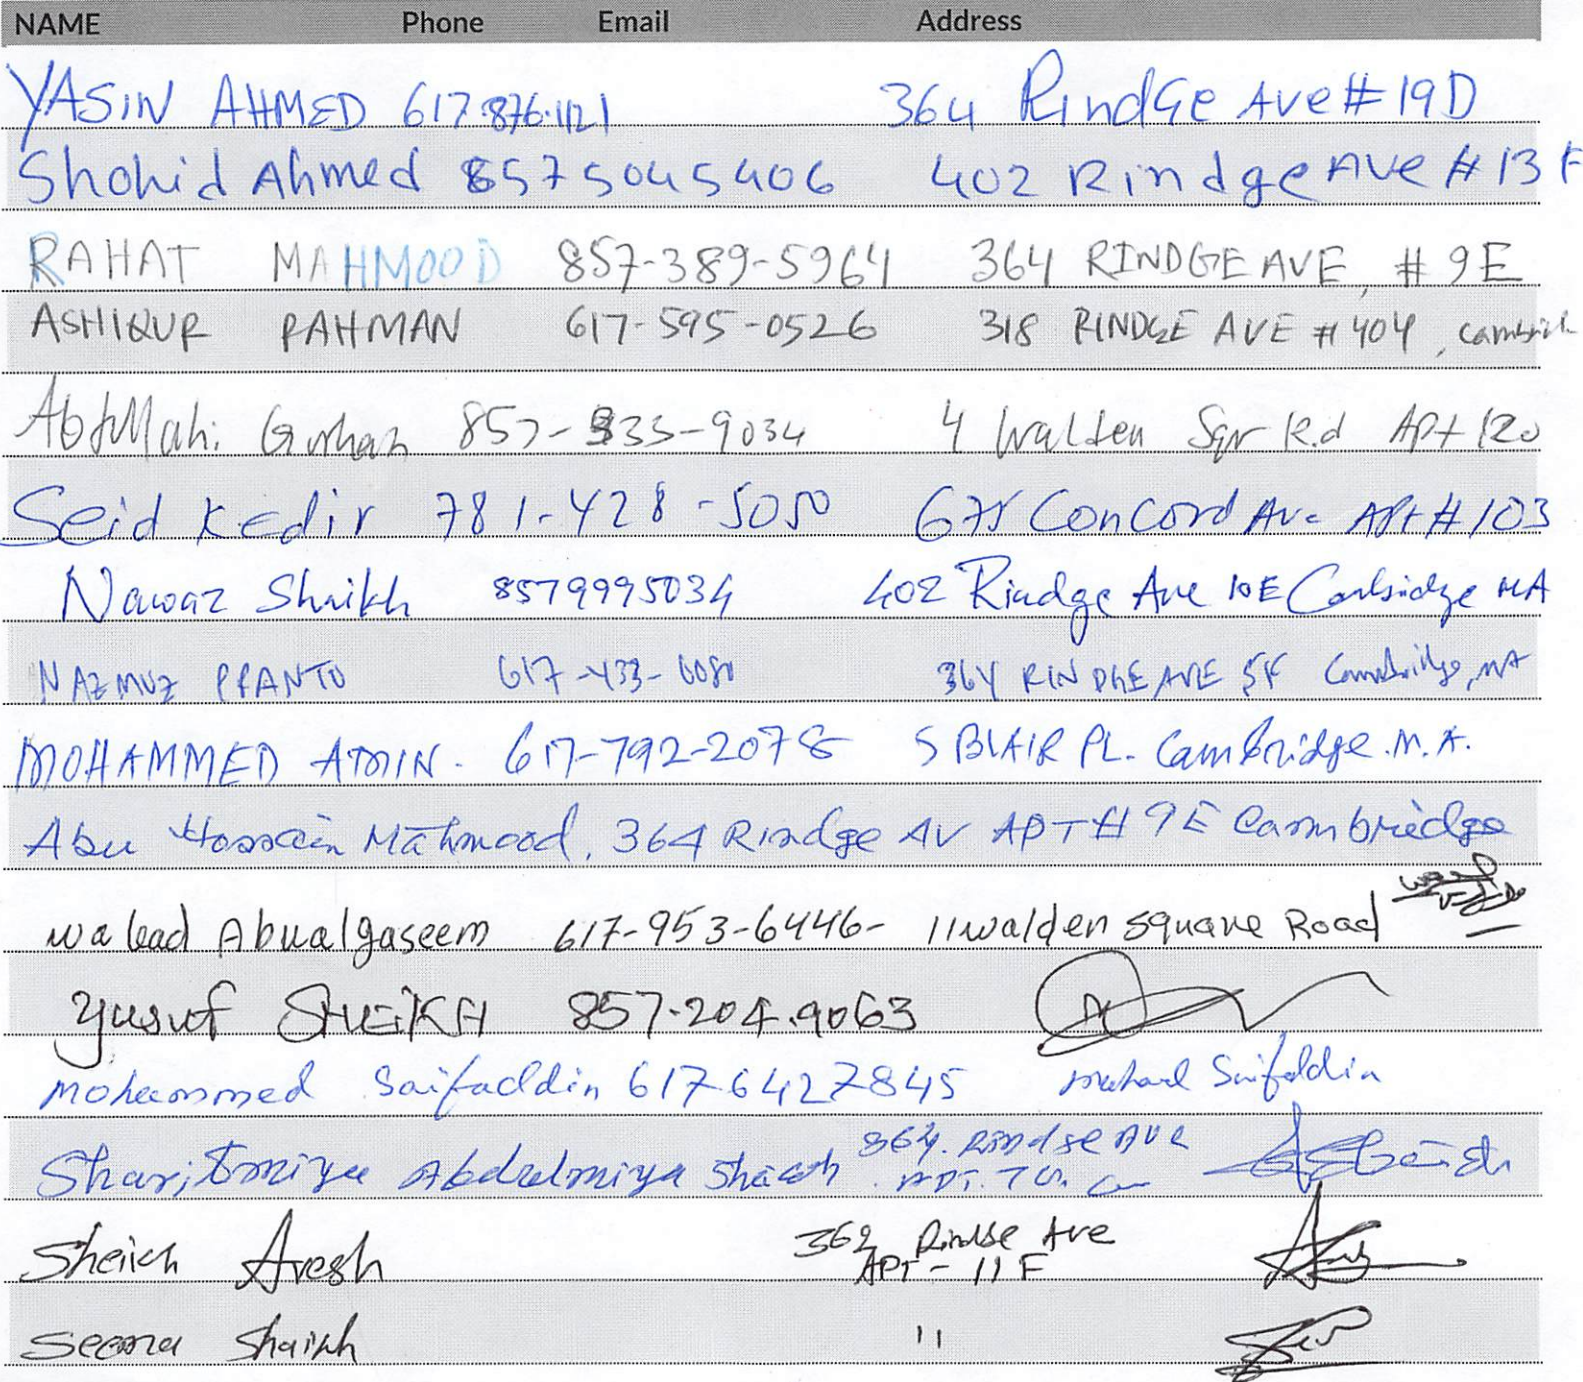 NAME Phone Email Address
YASIN AHMED 617.876.1121 364 RindGe Ave # 19D
Shohid Ahmed 8575045406 402 Rindge Ave # 13 F
RAHAT MAHMOOD 857-389-5964 364 RINDGE AVE, # 9E
ASHIQUR RAHMAN 617-595-0526 318 RINDGE AVE # 404,
857- 333-9034 4 Walden Sqr Rd APt 120
Seid Kedir 781-428-5050 675 Concord Ave APt # 103
Nawaz Shaikh 8579995034 402 Rindge Ave 10E Cambridge MA
NAZMUZ PRANTO 617-433- 364 RINDGE AVE 5F Cambridge, MA
MOHAMMED AMIN. 617-792-2078 5 BLAIR PL. Cambridge. M.A.
Abu Hossain Mahmood, 364 Rindge AV APT # 9E Cambridge
walead Abualgaseem 617-953-6446- 11 walden square Road
Yusuf SHEIKH 857-204.9063
Mohammed Saifuddin 6176427845 Saifuddin
Abdulmiya Rindge AVE
Sheikh Aresh Rindge Ave
APT - 11 F
Seema Shaikh 11